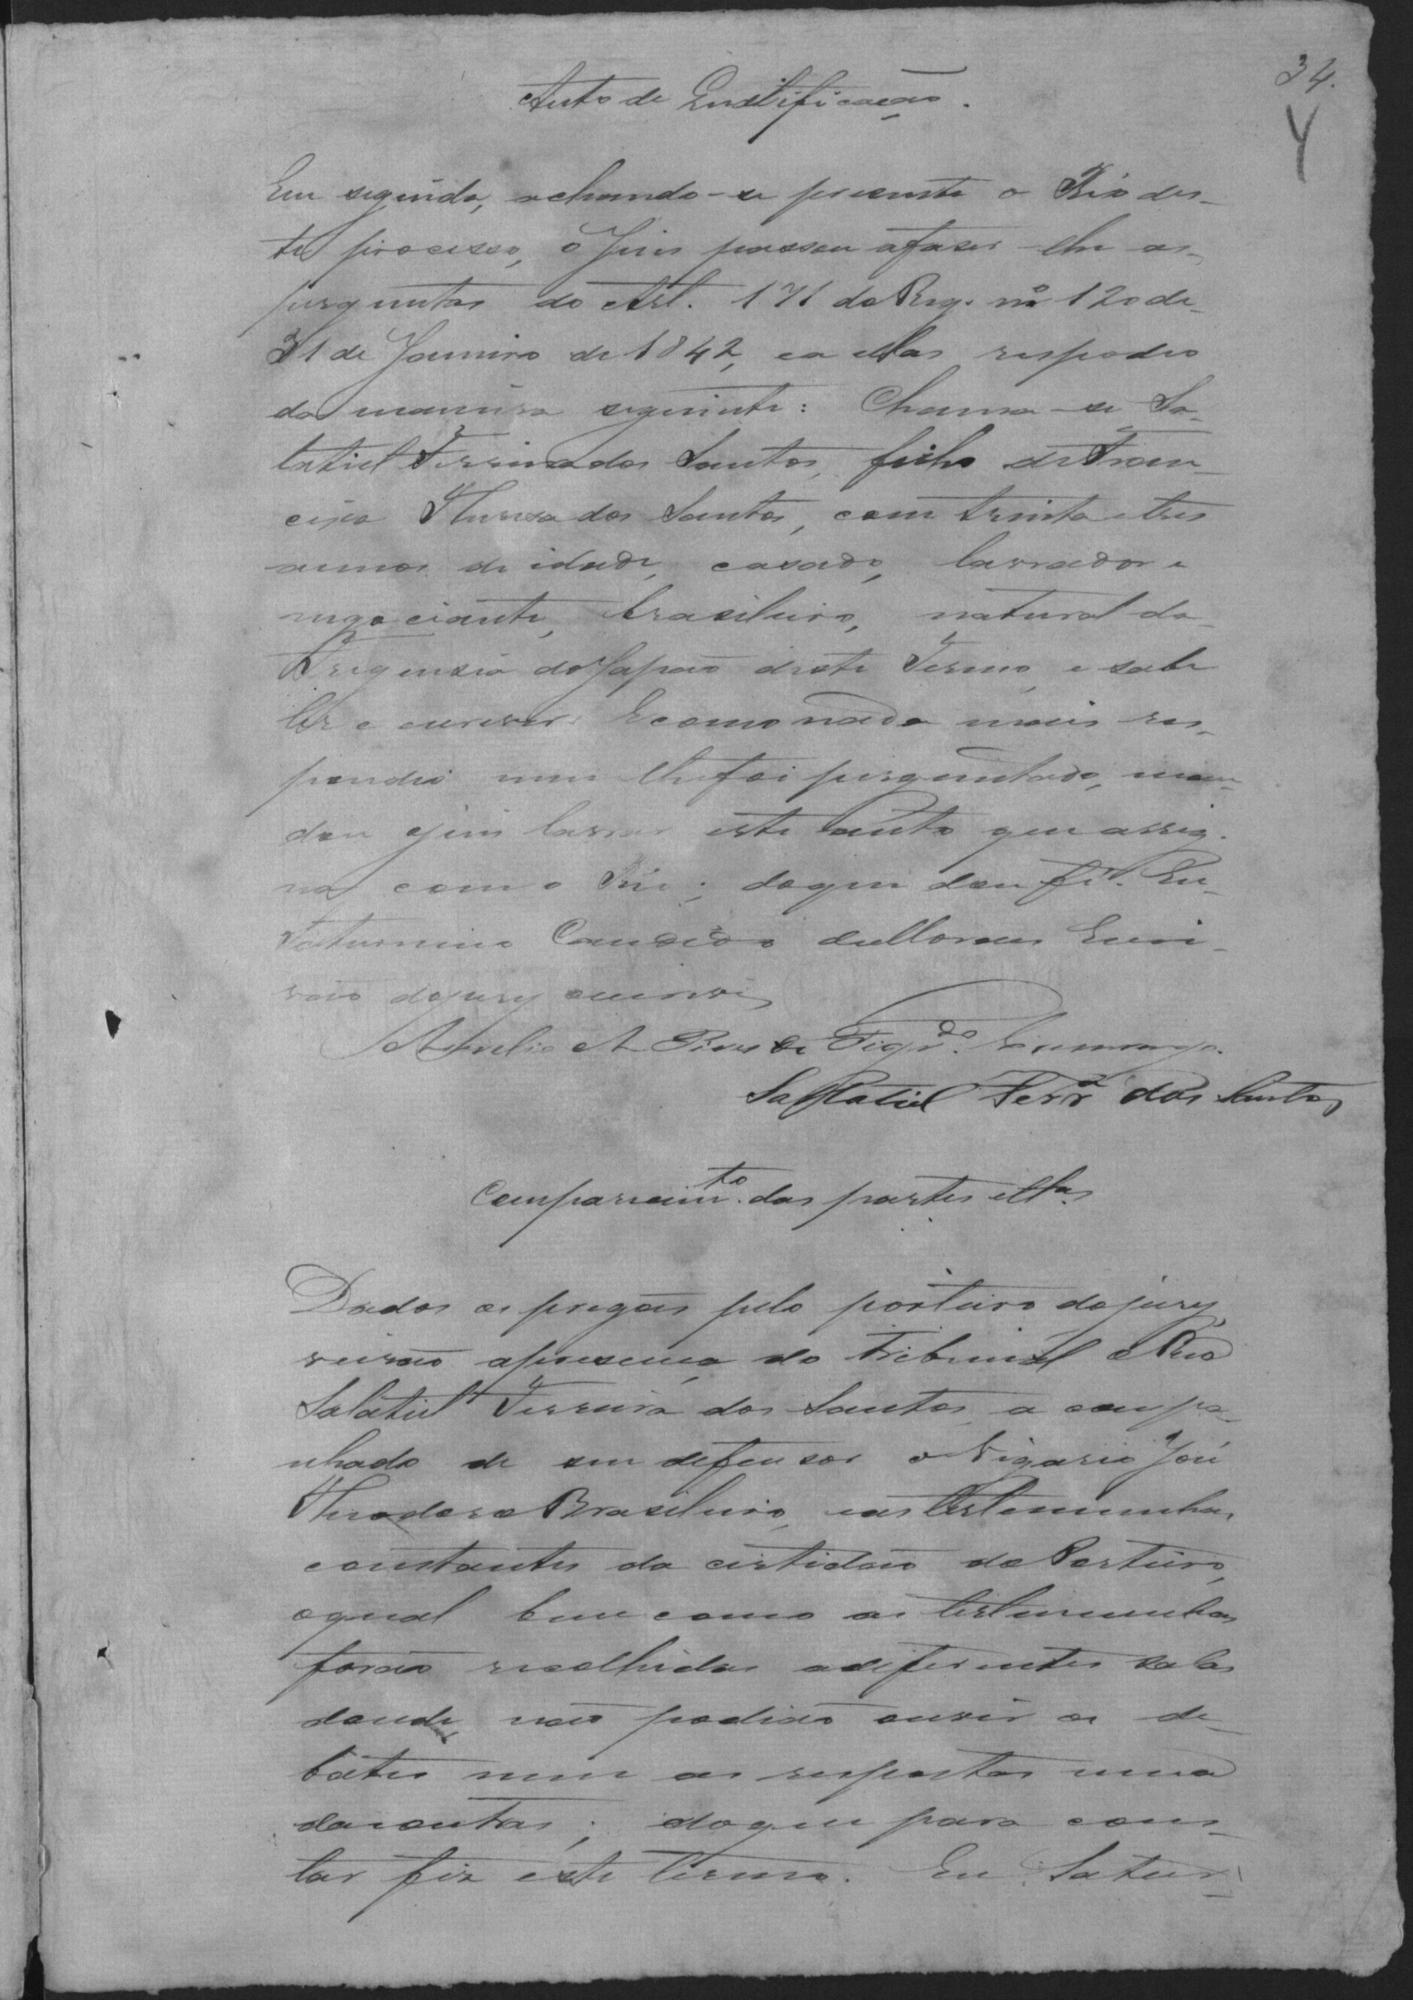 34.
Y
Auto de Qualificação.
Em seguida, achando-se presente o Réo des-
te processo, o Juiz passou afazer-lhe as
perguntas do Art. 171 do Reg. nº 120 de
31 de Janeiro de 1842, ea ellas respodeo
da maneira seguinte: Chama-se Sa-
latiel Ferreira dos Santos, filho de Fran-
cisco dos Santos, com trinta e tres
annos de idade, casado, lavrador e
negociante, brasileiro, natural da
Freguesia do Japão deste Termo, e sabe
ler e escrever. Ecomo nada mais res-
pondeo nem lhe foi perguntado, man-
dou o juiz lavrar este auto que assig-
na com o Réo; doque dou fé. Eu
Saturnino Candido de Moraes Escri-
vão dojury escrevi
A Pires de Figr.do Camargo.
Salatiel Ferr.a dos Santos
Comparecim.to das partes
Dados os pregões pelo porteiro dojury,
veirão apresença do tribunal o Reo
Salatiel Ferreira dos Santos, acompa-
nhado de seu defensor o Vigario José
Theodoro Brasileiro, eas testemunhas
constantes da certidão do Porteiro,
oqual bem como as testemunhas
forão recolhidas adiferentes salas
donde não podião ouvir os de-
bates nem as respostas umas
das outras; doque para cons-
tar fiz este termo. Eu Satur-